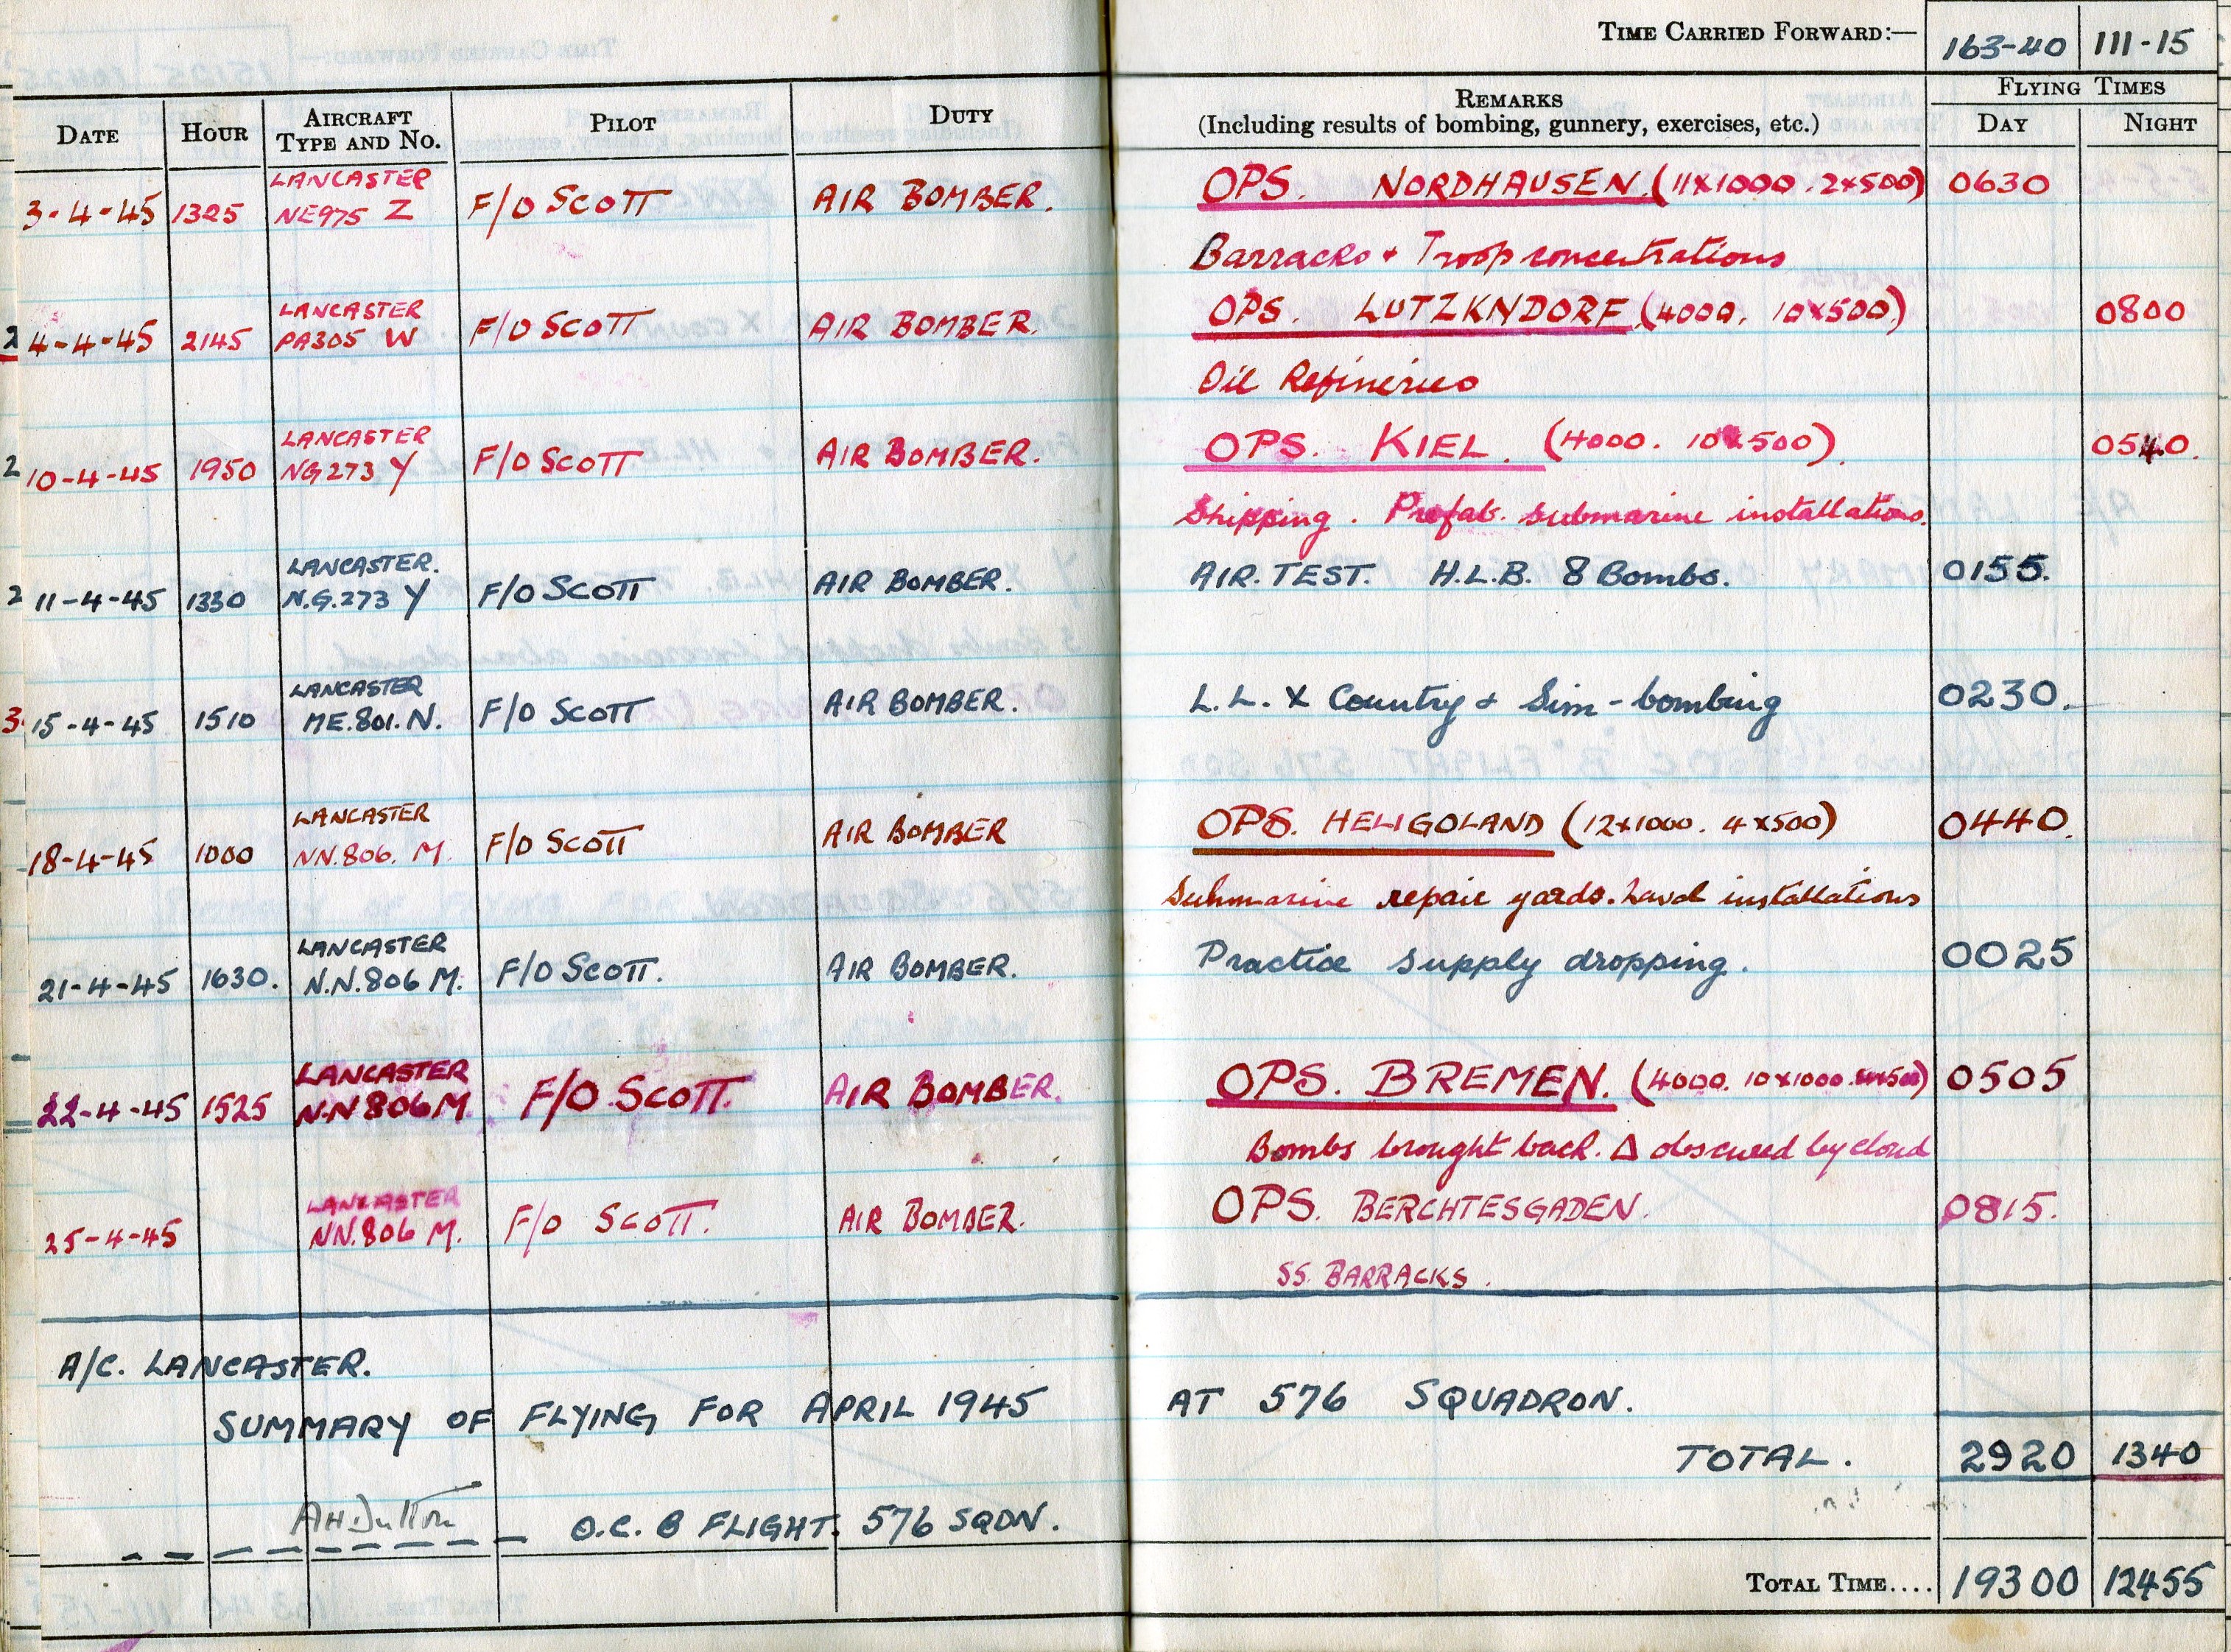 TIME CARRIED FORWARD:— 163-40 111-15
DATE HOUR AIRCRAFT TYPE AND NO. PILOT DUTY REMARKS (Including results of bombing, gunnery, exercises, etc.) FLYING TIMES DAY NIGHT
3-4-45 1325 LANCASTER NE975 Z F/O SCOTT AIR BOMBER. OPS. NORDHAUSEN. (11X1000. 2X500) 0630
Barracks + Troop concentrations
2 4-4-45 2145 LANCASTER PA305 W F/O SCOTT AIR BOMBER. OPS. LUTZKNDORF (4000, 10X500) 0800
Oil Refineries
2 10-4-45 1950 LANCASTER NG273 Y F/O SCOTT AIR BOMBER. OPS. KIEL. (4000. 10X500) 0540.
Shipping. Prefab. submarine installations.
2 11-4-45 1330 LANCASTER. N.G.273 Y F/O SCOTT AIR BOMBER. AIR. TEST. H.L.B. 8 Bombs. 0155.
3 15-4-45 1510 LANCASTER ME.801. N. F/O SCOTT AIR BOMBER. L.L. X Country + Sim-bombing 0230.
18-4-45 1000 LANCASTER NN.806. M. F/O SCOTT AIR BOMBER OPS. HELIGOLAND (12X1000. 4X500) 0440.
Submarine repair yards. Naval installations
21-4-45 1630. LANCASTER N.N.806 M. F/O SCOTT. AIR BOMBER. Practice supply dropping. 0025
22-4-45 1525 LANCASTER N.N 806 M. F/O SCOTT. AIR BOMBER. OPS. BREMEN. (4000. 10X1000. 500) 0505
Bombs brought back. Δ obscured by cloud
25-4-45 LANCASTER NN.806 M. F/O SCOTT. AIR BOMBER. OPS. BERCHTESGADEN. 0815.
SS. BARRACKS.
A/C. LANCASTER.
SUMMARY OF FLYING FOR APRIL 1945 AT 576 SQUADRON.
TOTAL. 2920 1340
AH Dutton O.C. B FLIGHT. 576 SQDN.
TOTAL TIME.... 19300 12455